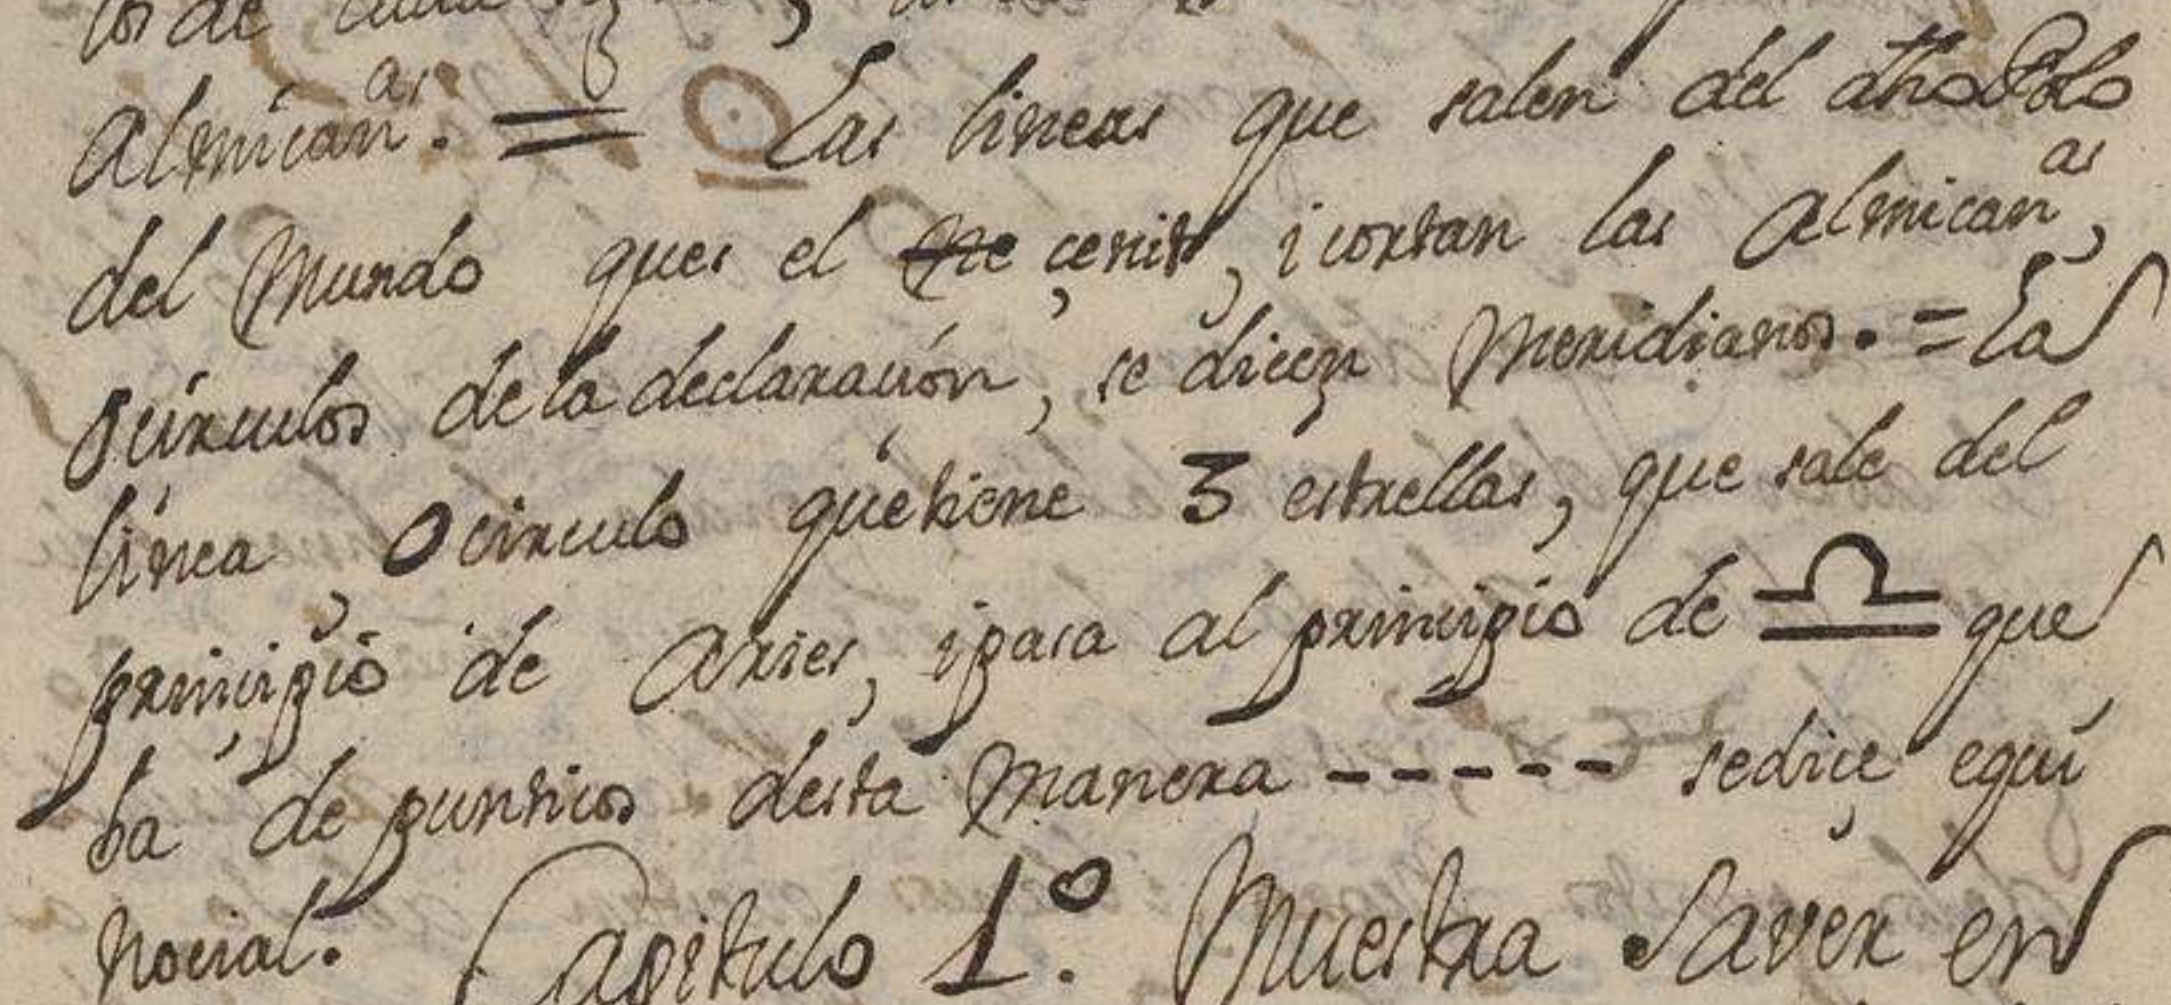 los de
Almican.as = Las lineas que salen del dho Polo
del Mundo ques el ne çenit, i cortan las Almican.as,
o círculos de la declaración, se dicen Meridianos. = La
línea, o circulo que tiene 3 estrellas, que sale del
prinçipio de Aries, i pasa al prinçipio de ♎ que
ba de punticos desta Manera ----- se diçe equi
nocial. Capitulo 1º. Muestra Saver en